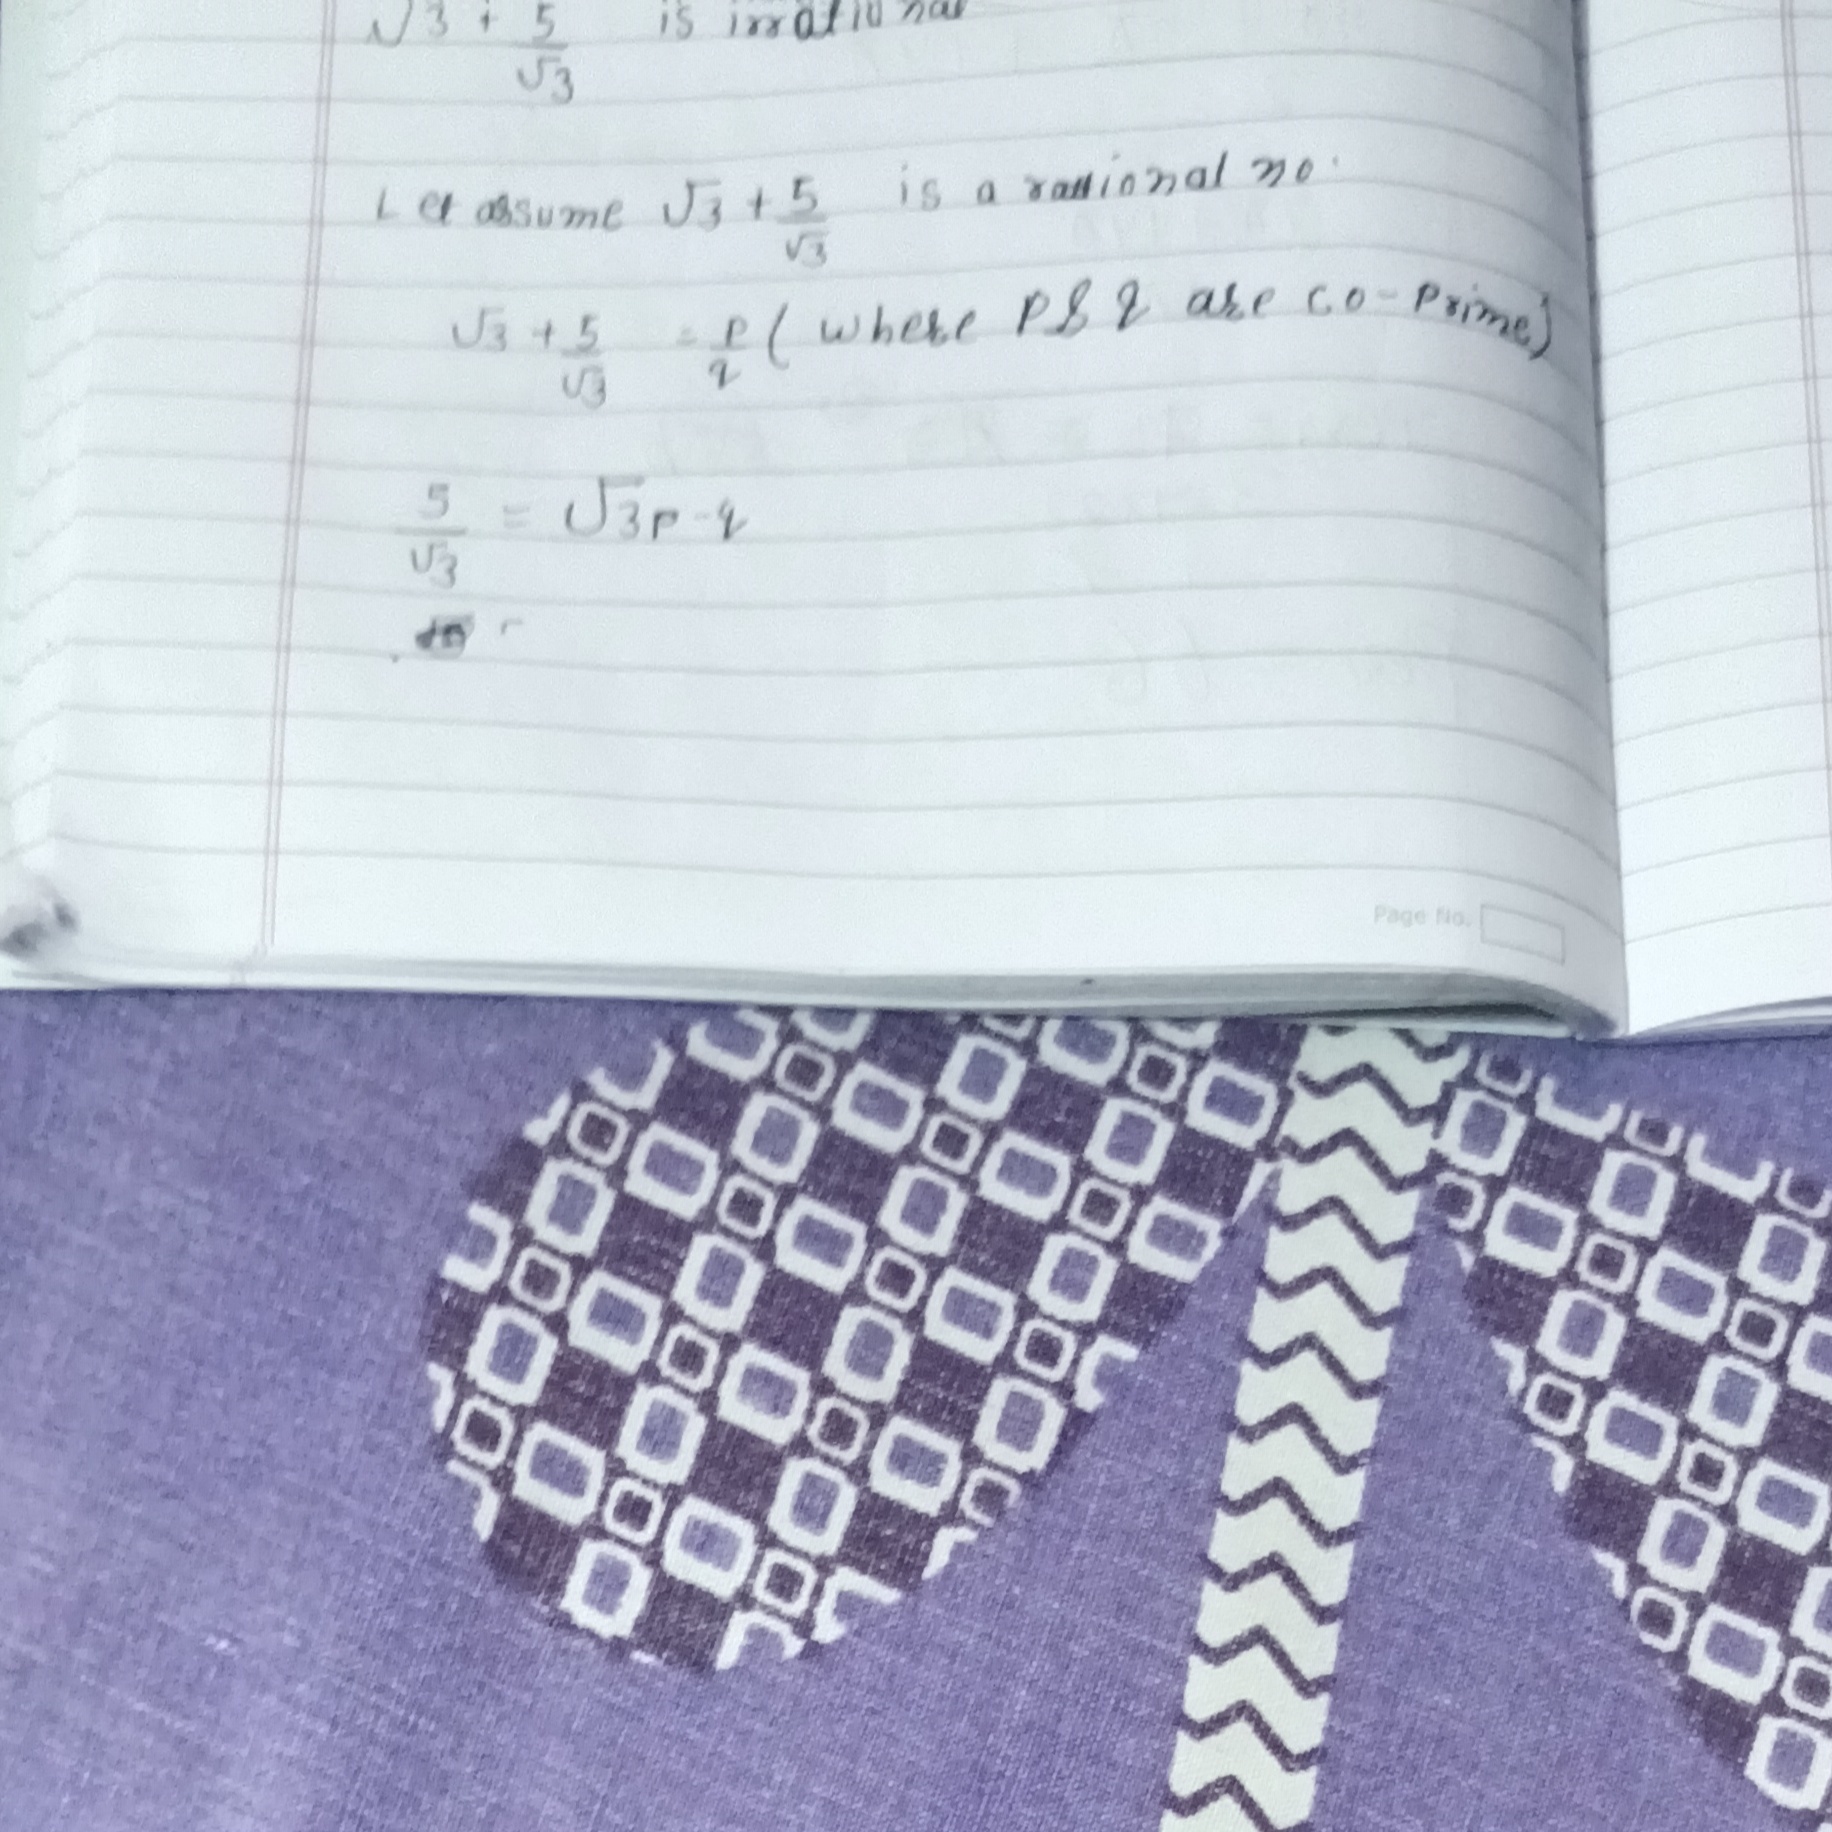 √3 + 5/√3 is irrational
Let assume √3 + 5/√3 is a rational no.
√3 + 5/√3 = p/q ( where P & q are co-prime)
5/√3 = √3p - q
Page No.